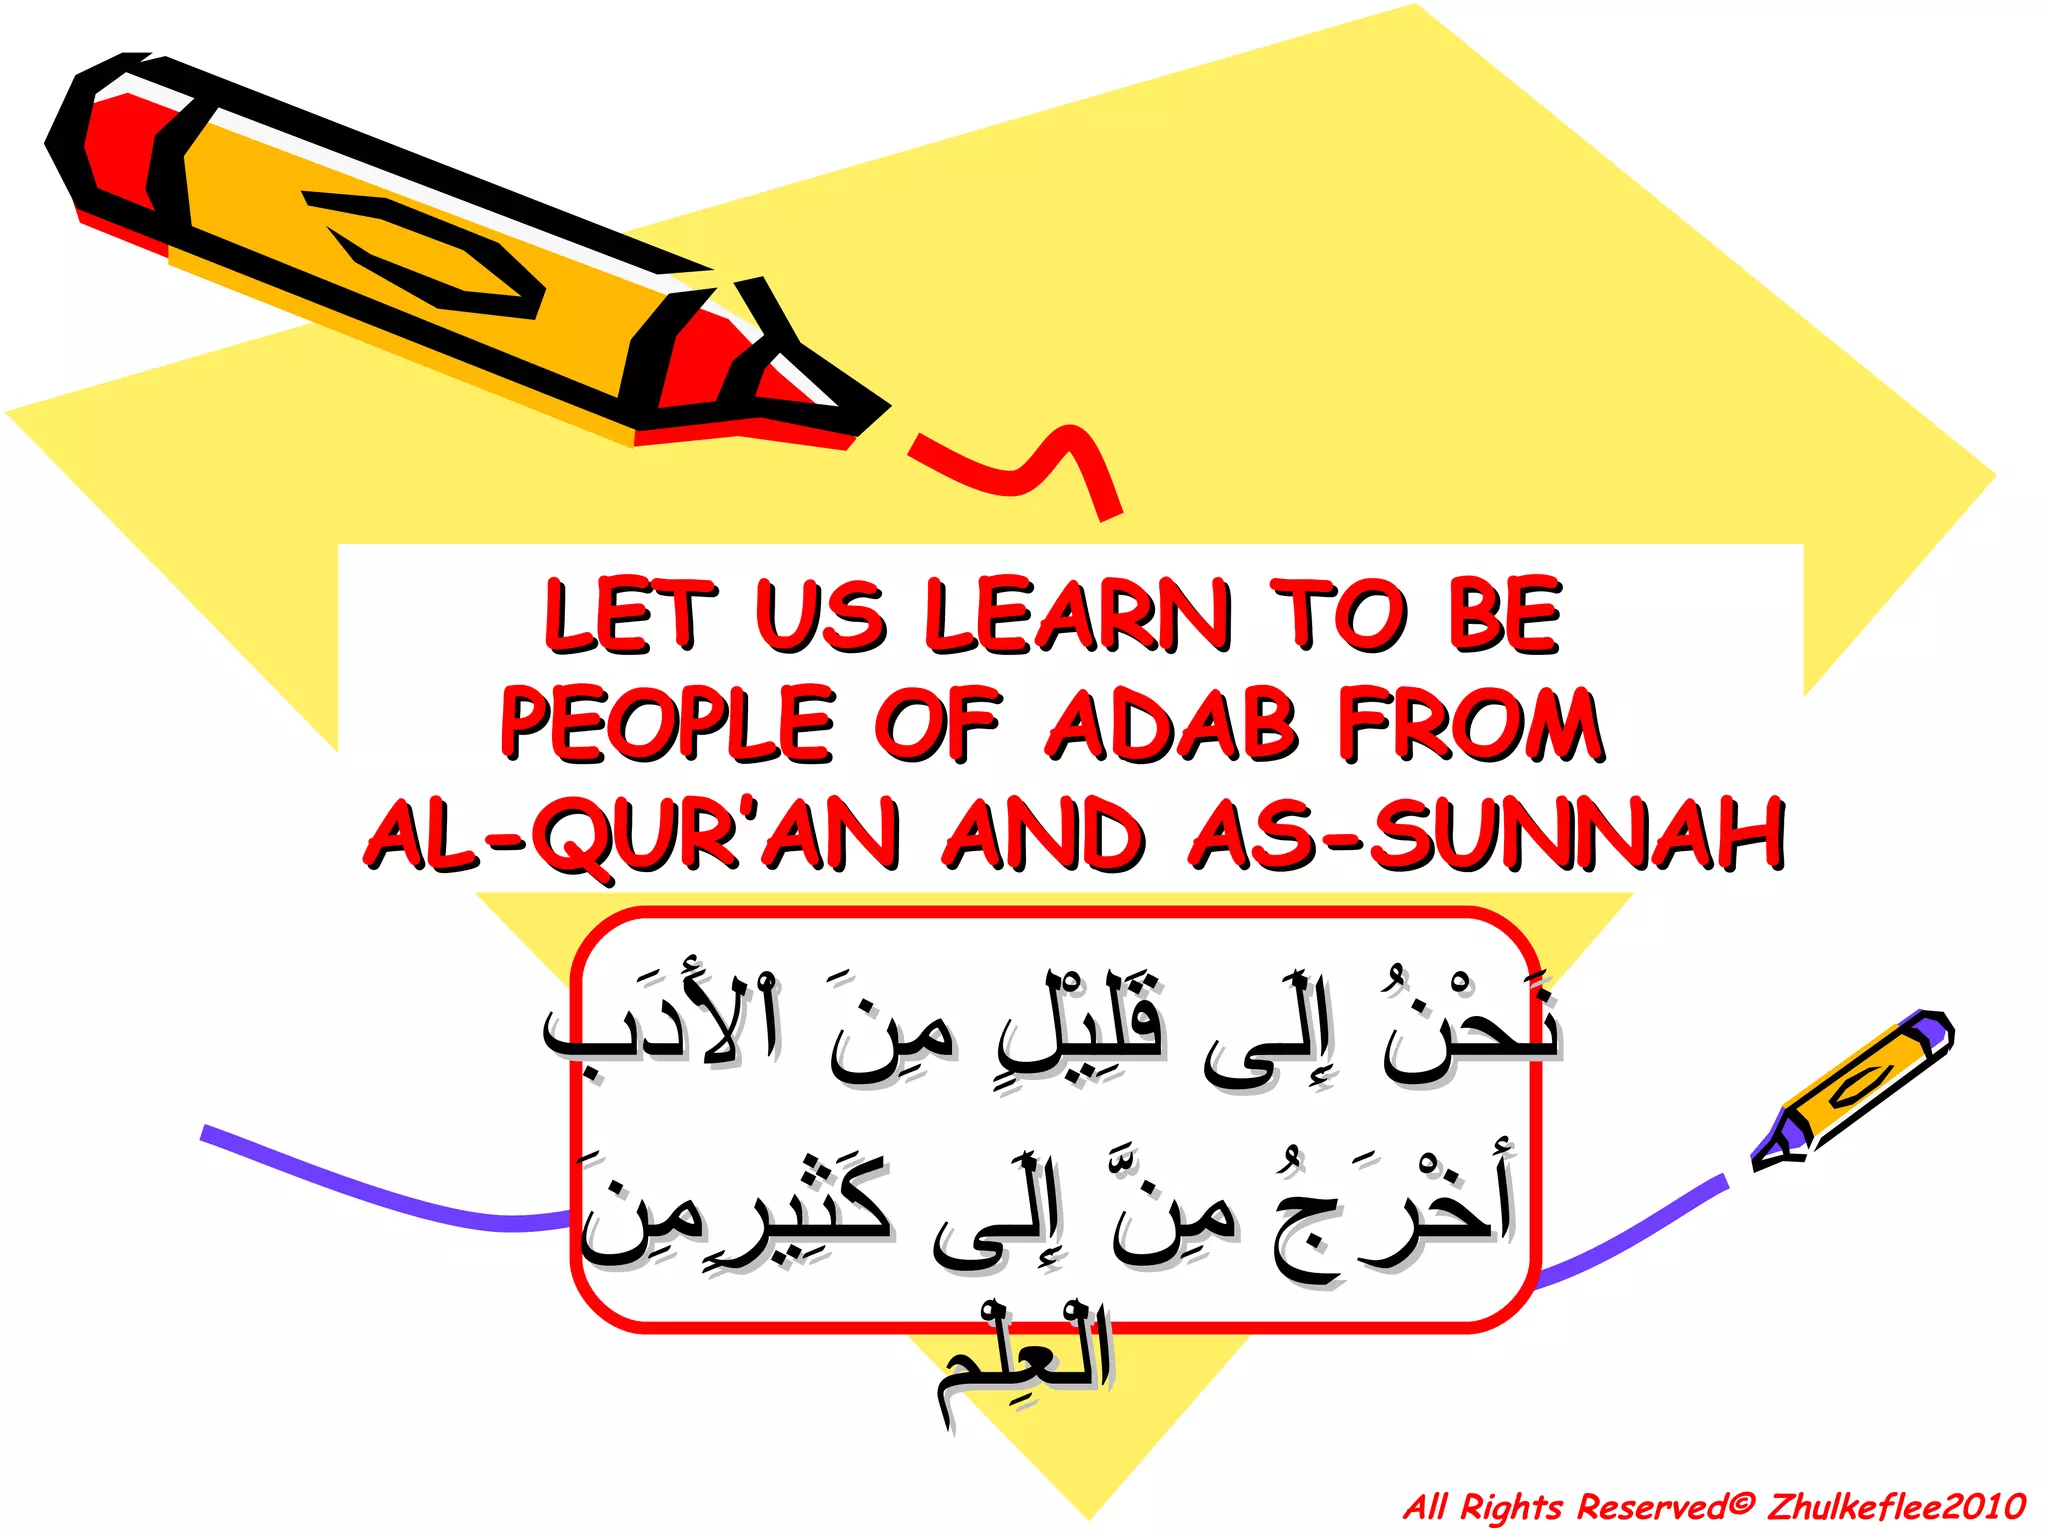 LET US LEARN TO BE
PEOPLE OF ADAB FROM
AL-QUR’AN AND AS-SUNNAH
نَحْنُ إِلَى قَلِيْلٍ مِنَ اْلأَدَبِ
أَخْرَجُ مِنَّ إِلَى كَثِيرٍمِنَ
الْعِلْم
All Rights Reserved© Zhulkeflee2010